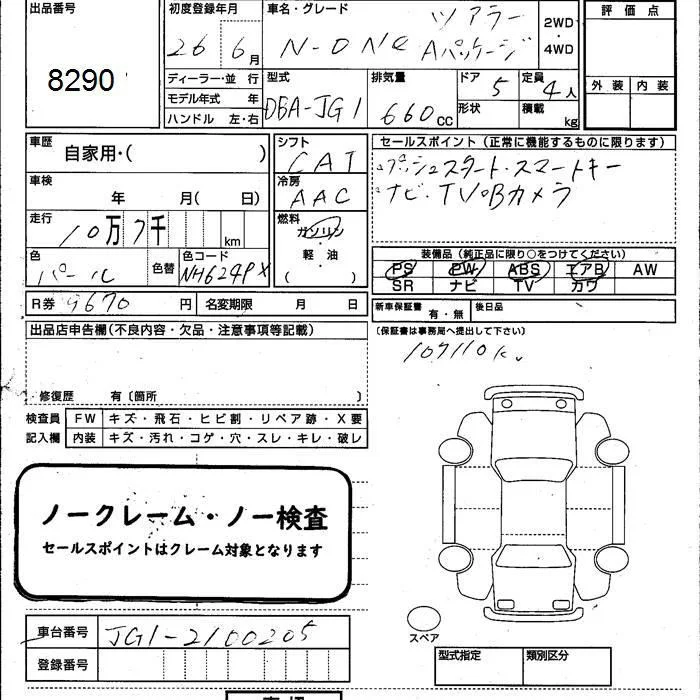 出品番号
8290
初度登録年月
26 年 6月
ディーラー・並 行
モデル年式 年
ハンドル 左・右
車名・グレード
ツアラー
N-ONe Aパッケージ
2WD
・
4WD
型式
DBA-JG1
排気量
660cc
ドア
5
形状
定員
4人
積載
kg
評価点
外装 内装
車歴
自家用・( )
車検
年 月( 日)
走行
10万7千 km
色
パール
色替
色コード
NH624PX
R券 9670 円 名変期限 月 日
シフト
CAT
冷房
AAC
燃料
ガソリン
軽・油
( )
セールスポイント(正常に機能するものに限ります)
・プッシュスタート・スマートキー
・ナビ・TV・Bカメラ
装備品(純正品に限り○をつけてください)
PS PW ABS エアB AW
SR ナビ TV カワ
新車保証書 有・無 後日品
(保証書は事務局へ提出して下さい)
107110K
出品店申告欄(不良内容・欠品・注意事項等記載)
修復歴 有〔箇所 〕
検査員記入欄
FW キズ・飛石・ヒビ割・リペア跡・X要
内装 キズ・汚れ・コゲ・穴・スレ・キレ・破レ
ノークレーム・ノー検査
セールスポイントはクレーム対象となります
スペア
車台番号 JG1-2100205
登録番号
型式指定 類別区分